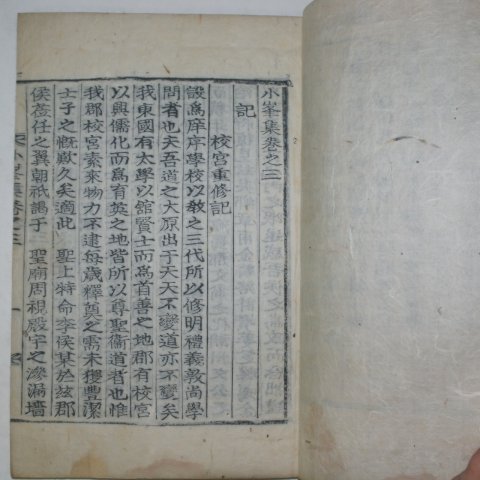 小峯集卷之三
記
校宮重修記
設爲庠序學校以敎之三代所以修明禮義敦尚學
問者也夫吾道之大原出于天天不變道亦不變矣
我東國有太學以舘賢士而爲首善之地郡有校宮
以興儒化而爲育英之地皆所以尊聖衛道者也惟
我郡校宮素來物力不逮每歲釋奠之需未獲豐潔
士子之慨歎久矣適此 聖上特命李侯某於玆郡
侯莅任之翼朝祇謁于 聖廟周視殿宇之滲漏墻
小峯集卷之三